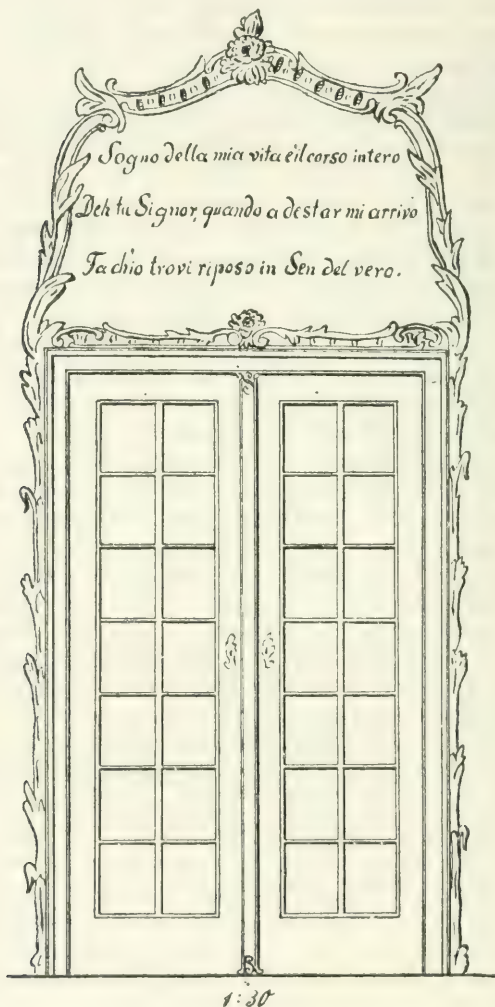 Sogno della mia vita e'il corso intero
Deh tu Signor, quando a destar mi arrivo
Fa ch'io trovi riposo in Sen del vero.
1:30